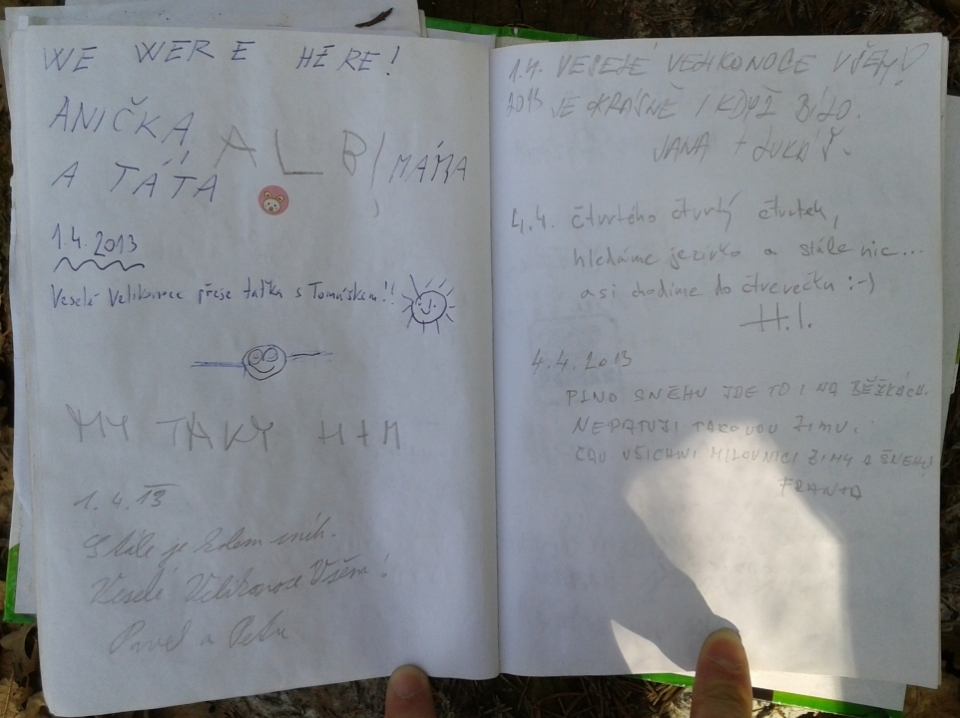 WE WERE HERE!
ANIČKA
A TÁTA
ALB
MÁRA
1.4.2013
Veselé Velikonoce přeje taťka s Tomáškem!!
MY TAKY H+M
1.4.13
Stále je kolem sníh.
Veselé Velikonoce Všem!
Pavel a Petra
1.4. VESELÉ VELIKONOCE VŠEM!
2013 JE KRÁSNĚ I KDYŽ BÍLO.
JANA + LUKÁŠ.
4.4. čtvrtého čtvrtý čtvrtek,
hledáme jezírko a stále nic...
asi chodíme do čtverečku :-)
H.I.
4.4.2013
PLNO SNĚHU JDE TO I NA BĚŽKÁCH.
NEPATUJI TAKOVOU ZIMU.
ČAU VŠICHNI MILOVNÍCI ZIMY A SNĚHU
FRANTA